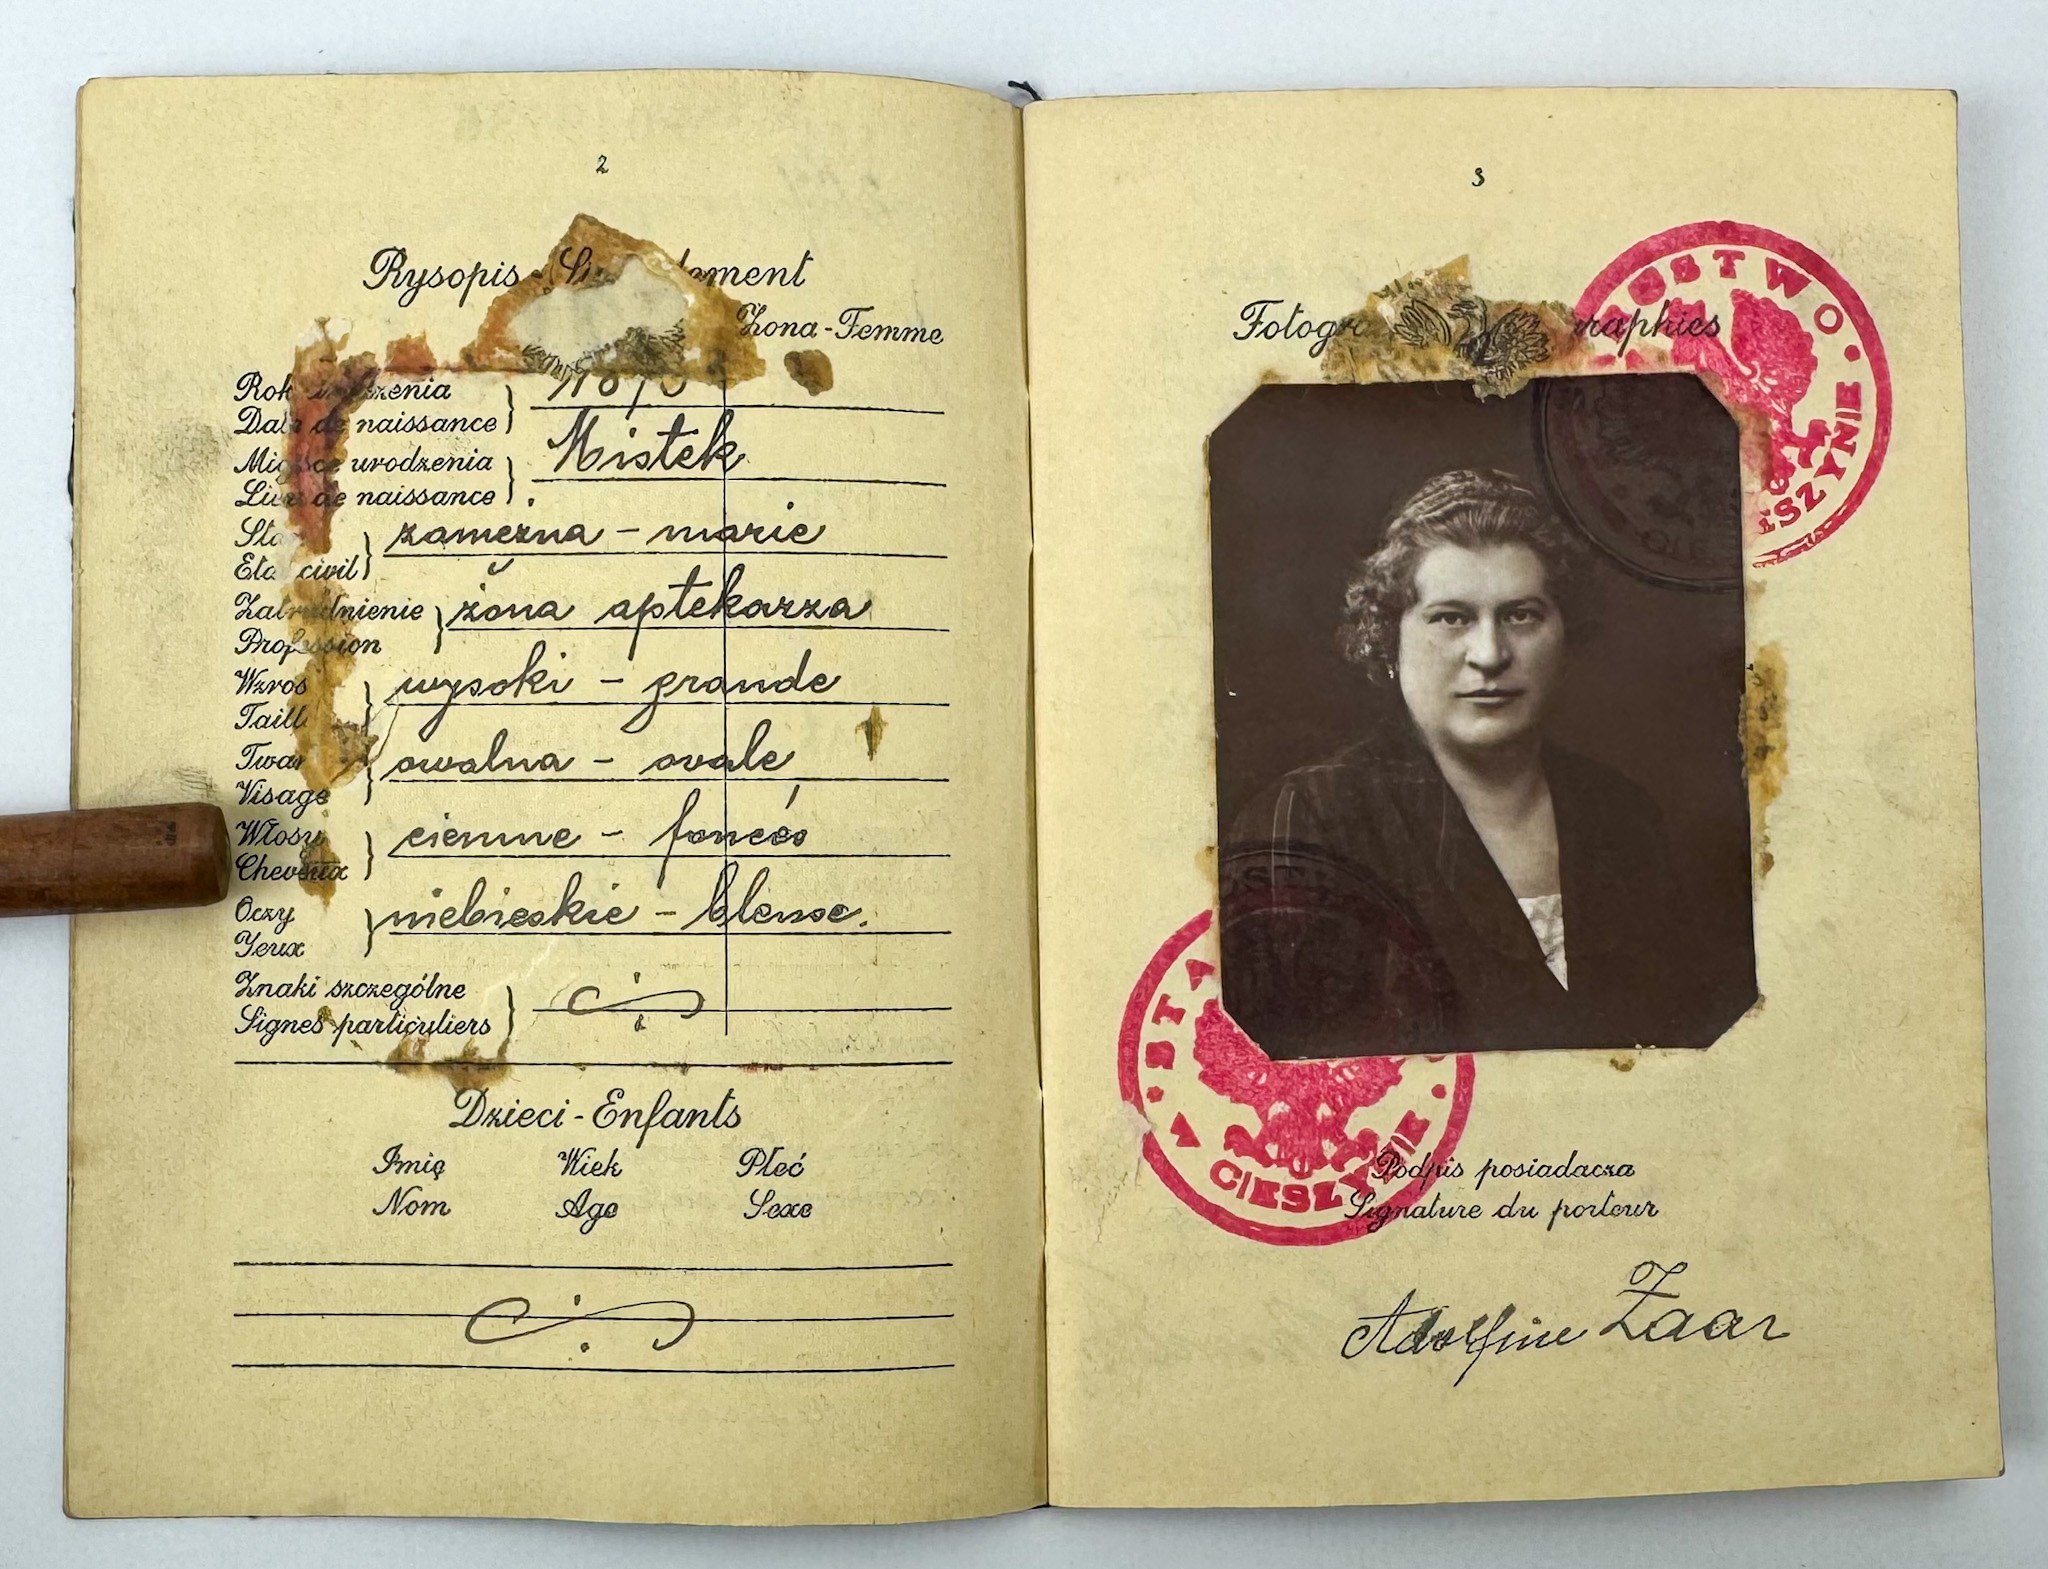 2
Rysopis
Żona-Femme
Rok urodzenia
Date de naissance
Miejsce urodzenia
Lieu de naissance
Mistek
Stan
Etat civil
zamężna - marie
Zatrudnienie
Profession
żona aptekarza
Wzrost
Taille
wysoki - grande
Twarz
Visage
owalna - ovale
Włosy
Cheveux
ciemne - foncés
Oczy
Yeux
niebieskie - bleuse.
Znaki szczególne
Signes particuliers
Dzieci-Enfants
Imię Wiek Płeć
Nom Age Sexe
3
STAROSTWO
W CIESZYNIE
STA
W CIESZYNIE
Podpis posiadacza
Signature du porteur
Adolfine Zaar